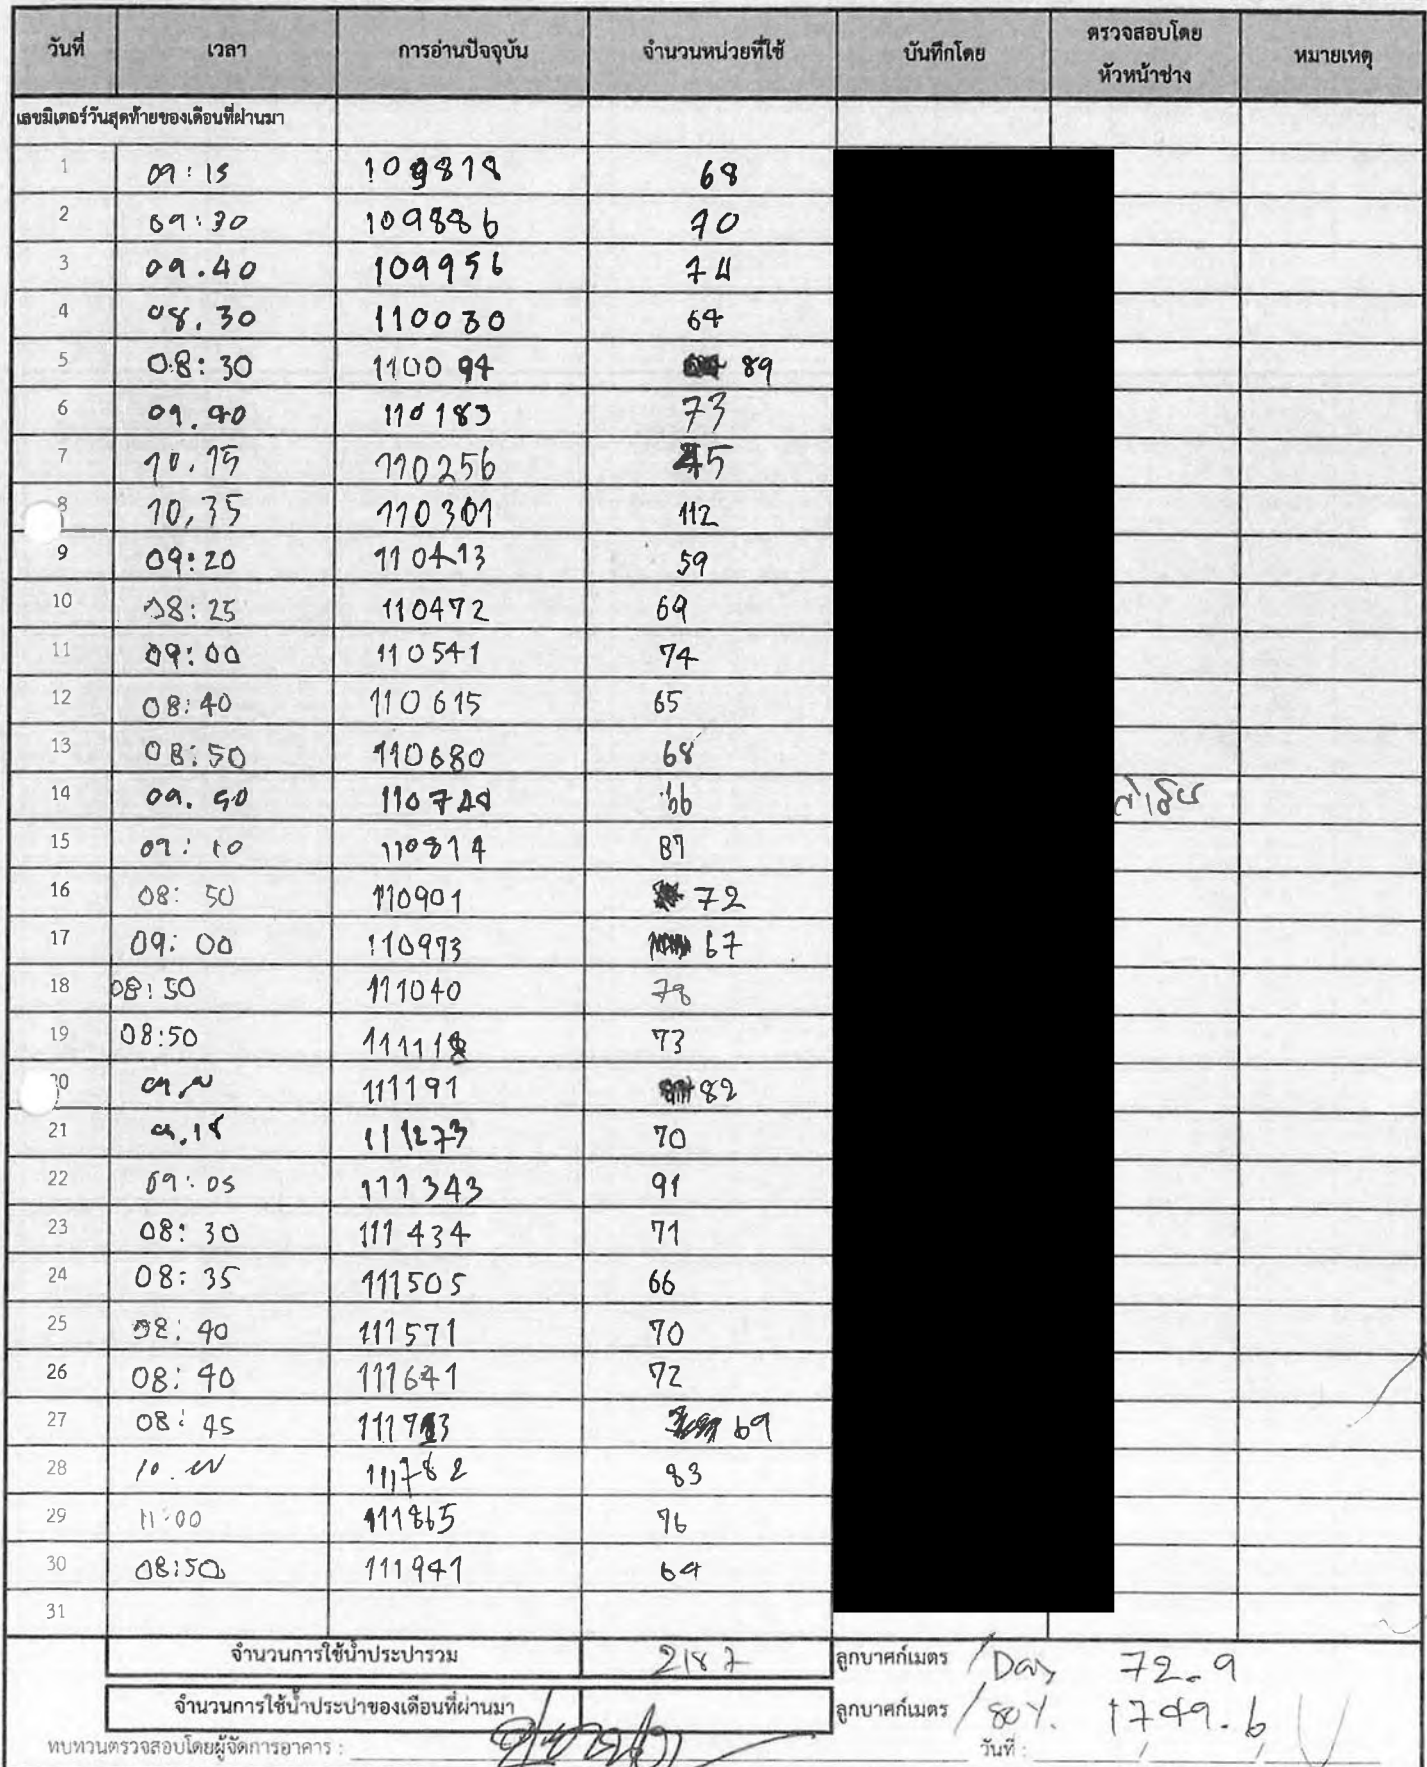 วันที่ เวลา การอ่านปัจจุบัน จำนวนหน่วยที่ใช้ บันทึกโดย ตรวจสอบโดย หัวหน้าช่าง หมายเหตุ
เลขมิเตอร์วันสุดท้ายของเดือนที่ผ่านมา
1 09:15 109818 68
2 09:30 109886 70
3 09.40 109956 74
4 08.30 110030 64
5 08:30 110094 89
6 09.40 110183 73
7 10.15 110256 45
8 10,35 110301 112
9 09:20 110413 59
10 08:25 110472 69
11 09:00 110541 74
12 08:40 110615 65
13 08:50 110680 68
14 09.40 110748 66
15 09:10 110814 87
16 08:50 110901 72
17 09:00 110973 67
18 08:50 111040 78
19 08:50 111118 73
20 111191 82
21 111273 70
22 09:05 111343 91
23 08:30 111434 71
24 08:35 111505 66
25 08:40 111571 70
26 08:40 111641 72
27 08:45 111713 69
28 111782 83
29 11:00 111865 76
30 08:50 111941 64
31
จำนวนการใช้น้ำประปารวม 2187 ลูกบาศก์เมตร /Day 72.9
จำนวนการใช้น้ำประปาของเดือนที่ผ่านมา ลูกบาศก์เมตร /80%. 1749.6
ทบทวนตรวจสอบโดยผู้จัดการอาคาร : วันที่ : / /